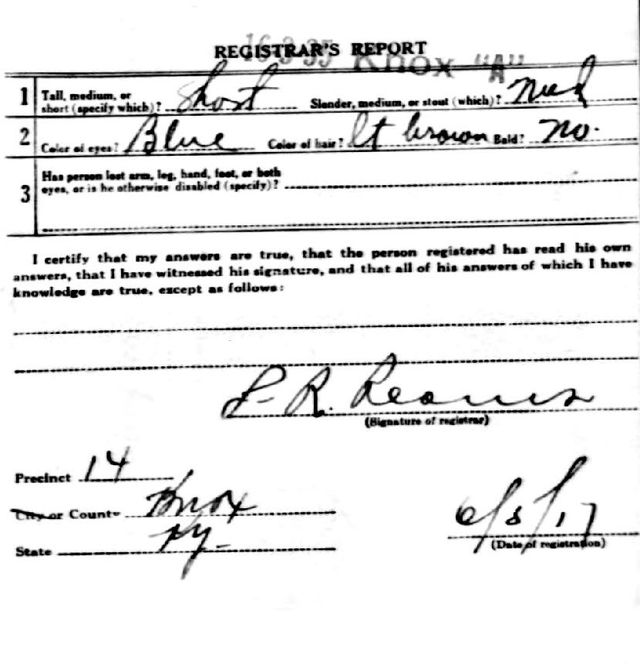 16-3-35 Knox "A"
REGISTRAR'S REPORT
1 Tall, medium, or short (specify which)? Short Slender, medium, or stout (which)? Med
2 Color of eyes? Blue Color of hair? Lt brown Bald? No.
3 Has person lost arm, leg, hand, foot, or both
eyes, or is he otherwise disabled (specify)?
I certify that my answers are true, that the person registered has read his own
answers, that I have witnessed his signature, and that all of his answers of which I have
knowledge are true, except as follows:
R. Reams
(Signature of registrar)
Precinct 14
City or County Knox
State Ky-
6/5/17
(Date of registration)